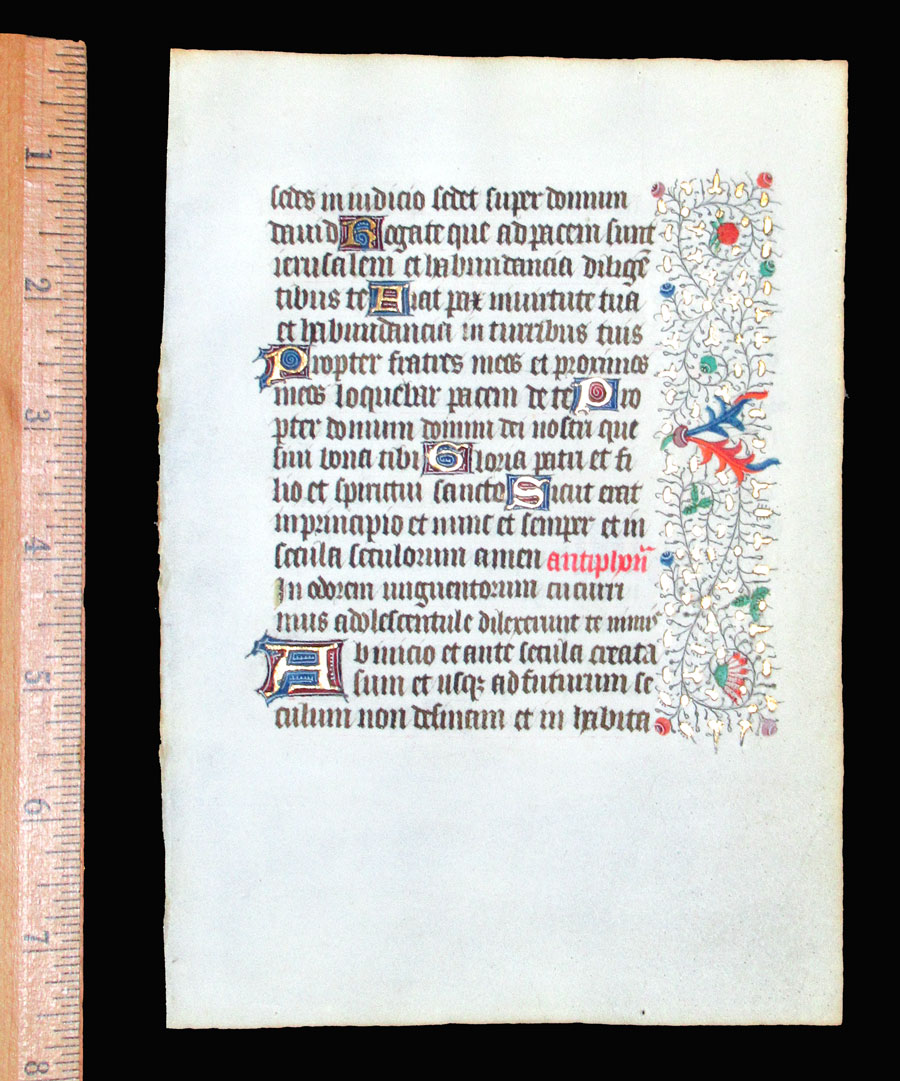 1
2
3
4
5
6
7
8
sedes in iudicio sedet super domum
dauid Rogate que ad pacem sunt
ierusalem et habundancia diligē
tibus te Fiat pax in uirtute tua
et habundancia in turribus tuis
Propter fratres meos et proximos
meos loquebar pacem de te Pro
pter domum domini dei nostri que
siui bona tibi Gloria patri et fi
lio et spiritui sancto Sicut erat
in principio et nunc et semper et in
secula seculorum amen antiphoñ
In odorem unguentorum cucurri
mus adolescentule dilexerunt te nimis
Ab inicio et ante secula creata
sum et usq; ad futurum se
culum non desinam et in habita